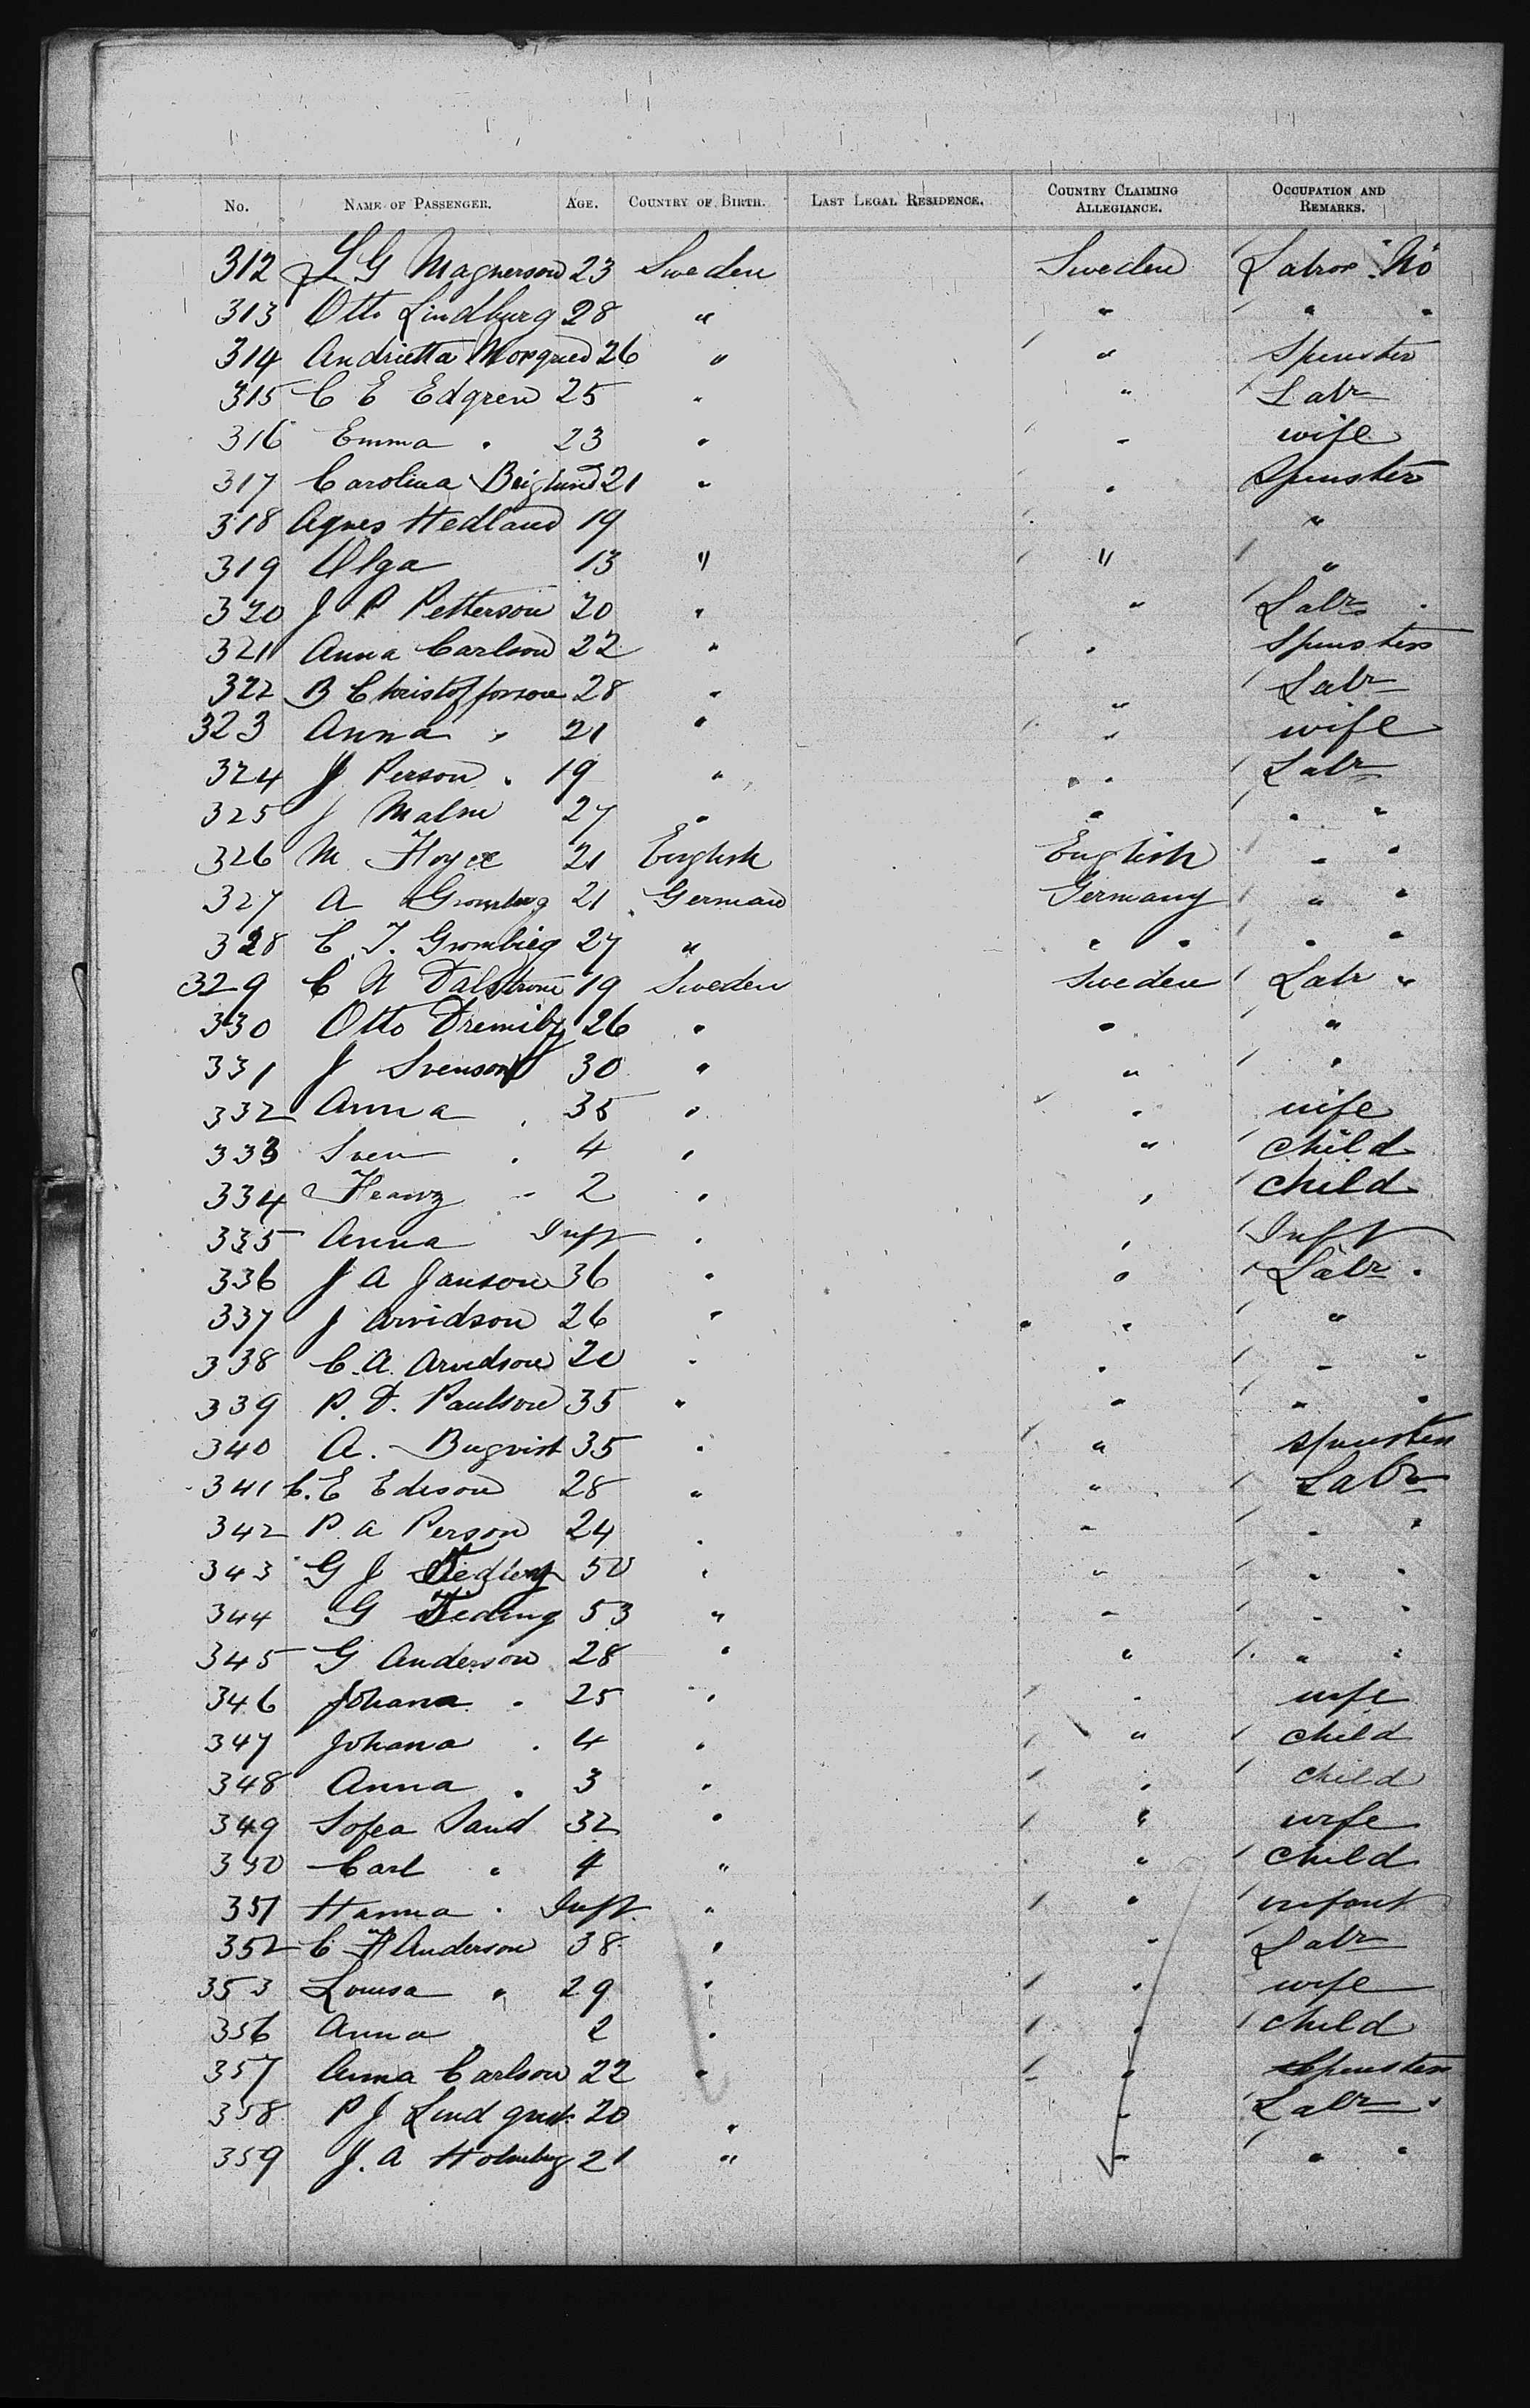 No. NAME OF PASSENGER. AGE. COUNTRY OF BIRTH. LAST LEGAL RESIDENCE. COUNTRY CLAIMING ALLEGIANCE. OCCUPATION AND REMARKS.
312 L G Magnerson 23 Sweden Sweden Labror No
313 Otto Lindburg 28 " " " "
314 Andrietta 26 " " Spinster
315 C E Edgren 25 " " Labr
316 Emma " 23 " " wife
317 Carolina 21 " " Spinster
318 Agnes Hedland 19 "
319 Olga 13 " " "
320 J P Petterson 20 " " Labr "
321 Anna Carlson 22 " " Spinster
322 B Christofforson 28 " " Labr
323 Anna " 21 " " wife
324 J Person " 19 " " Labr
325 J Malm 27 " " " "
326 M 21 English English " "
327 A 21 German Germany " "
328 C. J. 27 " " " " "
329 C A Dalstrom 19 Sweden Sweden Labr "
330 Otto 26 " " "
331 J Svenson 30 " " "
332 Anna " 35 " " wife
333 Sven " 4 " " child
334 " 2 " " child
335 Anna Inft " " Inft
336 J A Janson 36 " " Labr "
337 J Arvidson 26 " " " "
338 C. A. Arvidson 20 " " " "
339 P. D. Paulson 35 " " " "
340 A. 35 " " spinster
341 C. E Edeson 28 " " Labr
342 P. a Person 24 " " " "
343 G J 50 " " " "
344 G Teding 53 " " " "
345 G Anderson 28 " " " "
346 Johana " 25 " " wife
347 Johana " 4 " " child
348 Anna " 3 " " child
349 Sofea Sand 32 " " wife
350 Carl " 4 " " child
351 Hanna " Inft " " infant
352 C F Anderson 38 " " Labr
353 Lousa " 29 " " wife
356 Anna 2 " " child
357 Anna Carlson 22 " " Spinster
358 P J Lind 20 " " Labr "
359 J. A Holmberg 21 " " " "